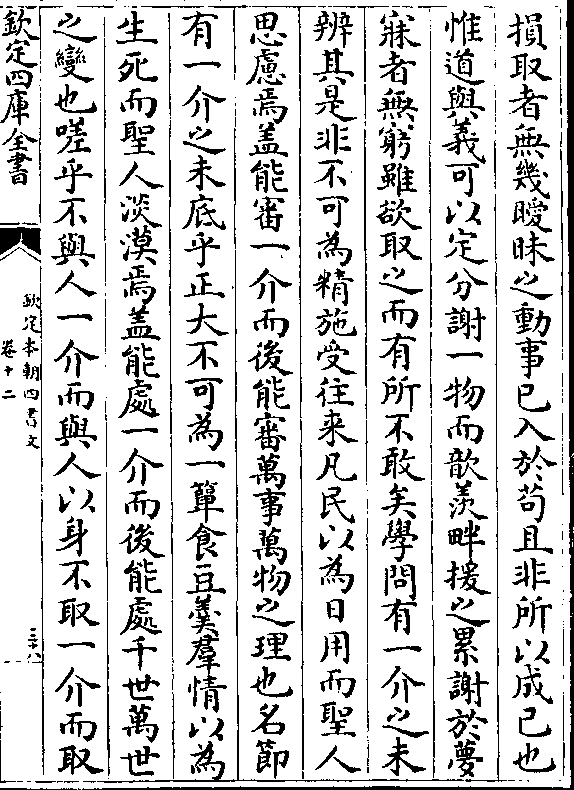 損取者無幾曖昧之動事已入於苟且非所以成己也
惟道與義可以定分謝一物而歆羨畔援之累謝於夢
寐者無窮雖欲取之而有所不敢矣學問有一介之未
辨其是非不可為精施受往来凡民以為日用而聖人
思慮焉盖能審一介而後能審萬事萬物之理也名節
有一介之未底乎正大不可為一簞食豆羹羣情以為
生死而聖人淡漠焉盖能處一介而後能處千世萬世
之變也嗟乎不與人一介而與人以身不取一介而取
欽定四庫全書
欽定本朝四書文
卷十二
三十八